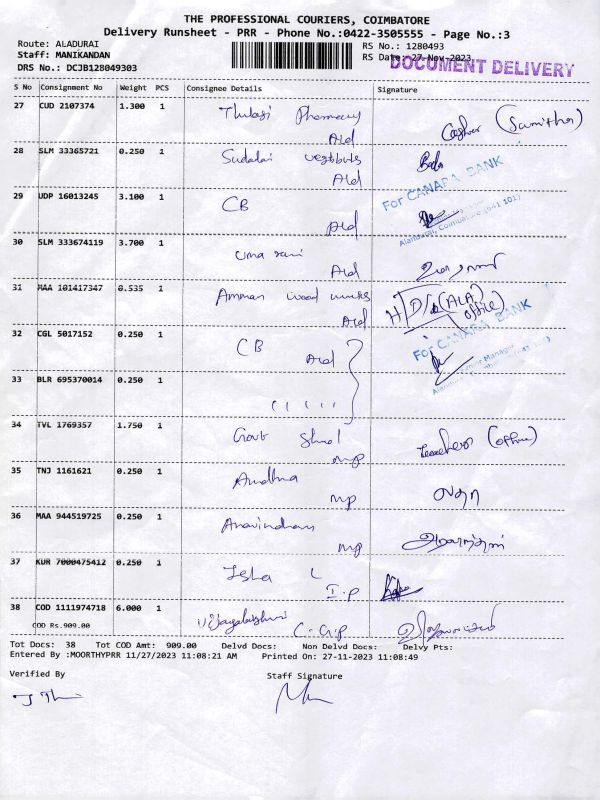 THE PROFESSIONAL COURIERS, COIMBATORE
Delivery Runsheet - PRR - Phone No.:0422-3505555 - Page No.:3
Route: ALADURAI
RS No.: 1280493
Staff: MANIKANDAN
RS Date: 27-Nov-2023
DOCUMENT DELIVERY
DRS No.: DCJB128049303
S No Consignment No Weight PCS Consignee Details Signature
27 CUD 2107374 1.300 1 Thulasi Pharmacy
Ald
(Sumithra)
28 SLM 33365721 0.250 1 Sudalai
Ald
For CANARA BANK
29 UDP 16013245 3.100 1 CB
Ald
Alandurai, Coimbatore (641 101)
30 SLM 333674119 3.700 1 Uma rani
Ald உமாராணி
31 MAA 101417347 0.535 1 Amman wood works
Ald
H/D (ALA) office)
32 CGL 5017152 0.250 1 CB
Ald
For CANARA BANK
Manager
33 BLR 695370014 0.250 1 ( ( ( ( (
34 TVL 1769357 1.750 1 Govt
mp
(office)
35 TNJ 1161621 0.250 1
mp லதா
36 MAA 944519725 0.250 1 Aravindhan
mp அரவிந்தன்
37 KUR 7000475412 0.250 1 Isha L
I.P
38 COD 1111974718 6.000 1 Vijayalakshmi
COD Rs.909.00
C.G.P
Tot Docs: 38 Tot COD Amt: 909.00 Delvd Docs: Non Delvd Docs: Delvy Pts:
Entered By :MOORTHYPRR 11/27/2023 11:08:21 AM Printed On: 27-11-2023 11:08:49
Verified By
Staff Signature